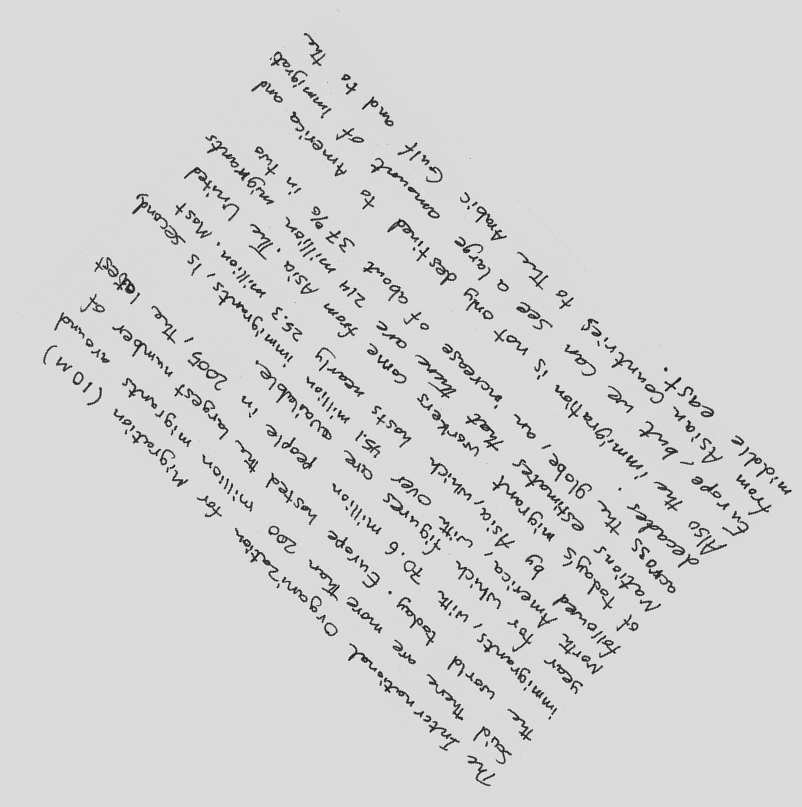 The International Organization for Migration (IOM)
said there are more than 200 million migrants around
the world today. Europe hosted the largest number of
immigrants, with 70.6 million people in 2005, the latest
year for which figures are available.
North America, with over 45.1 million immigrants, is second,
followed by Asia, which hosts nearly 25.3 million. Most
of today's migrant workers come from Asia. The United
Nations estimates that there are 214 million migrants
across the globe, an increase of about 37% in two
decades.
Also the immigration is not only destined to America and
Europe, but we can see a large amount of immigrati
from Asian Countries to the Arabic Gulf and to the
middle east.